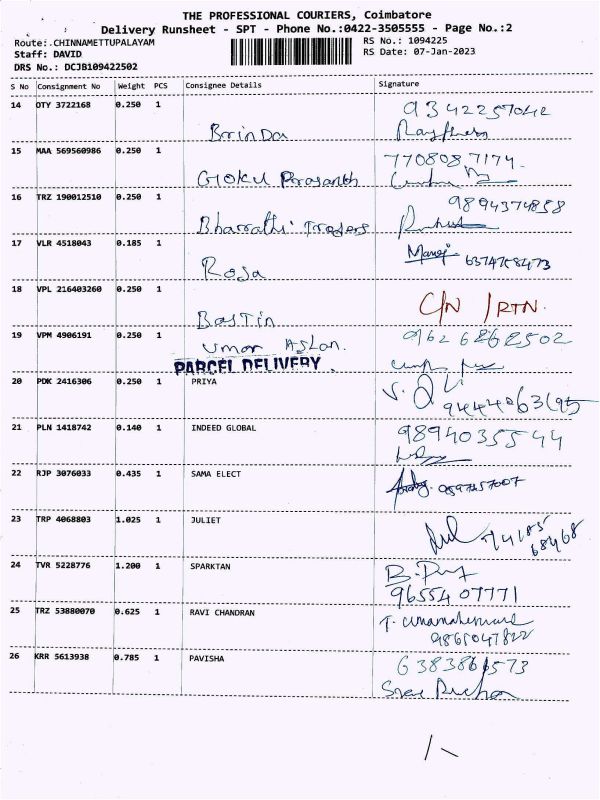 THE PROFESSIONAL COURIERS, Coimbatore
Delivery Runsheet - SPT - Phone No.:0422-3505555 - Page No.:2
Route: CHINNAMETTUPALAYAM RS No.: 1094225
Staff: DAVID RS Date: 07-Jan-2023
DRS No.: DCJB109422502
S No Consignment No Weight PCS Consignee Details Signature
14 OTY 3722168 0.250 1 9342257042
Brinda
15 MAA 569560986 0.250 1 7708087174
Gokul Prasanth
16 TRZ 190012510 0.250 1 9894374858
Bharrathi Traders
17 VLR 4518043 0.185 1 Manoj 6374758473
Roja
18 VPL 216403260 0.250 1 C/N / RTN.
Bastin
19 VPM 4906191 0.250 1 9626862502
Umar Aslan.
PARCEL DELIVERY
20 PDK 2416306 0.250 1 PRIYA
9444063195
21 PLN 1418742 0.140 1 INDEED GLOBAL 9894035544
22 RJP 3076033 0.435 1 SAMA ELECT
23 TRP 4068803 1.025 1 JULIET 74185
68468
24 TVR 5228776 1.200 1 SPARKTAN
9655407771
25 TRZ 53880070 0.625 1 RAVI CHANDRAN T. Umamaheswari
9865047822
26 KRR 5613938 0.785 1 PAVISHA 6383866573